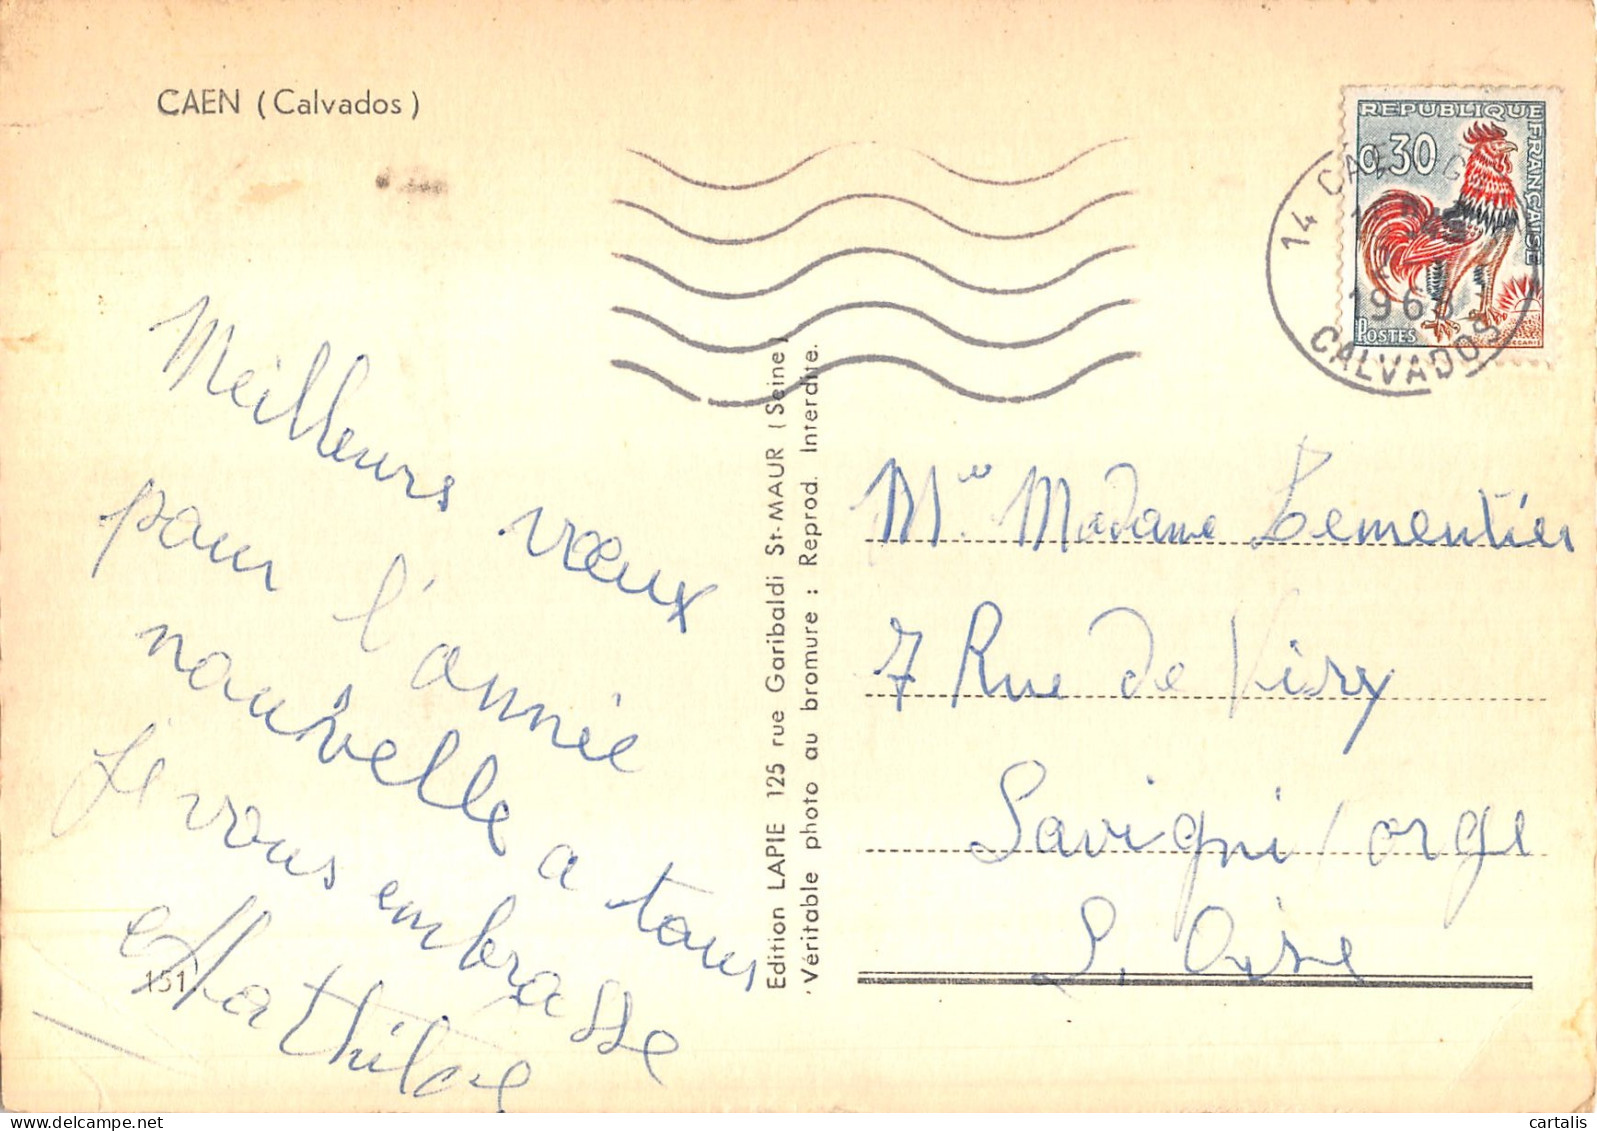 CAEN (Calvados)
REPUBLIQUE FRANÇAISE
0,30
POSTES
14 CAEN
1968
CALVADOS
Meilleurs vœux
pour l'année
nouvelle a tous
Je vous embrasse
Mathilde
151
Edition LAPIE 125 rue Garibaldi St-MAUR (Seine)
Véritable photo au bromure : Reprod. Interdite.
Madame Lementier
7 Rue de Viry
Savigni / orge
S. Oise
cartalis